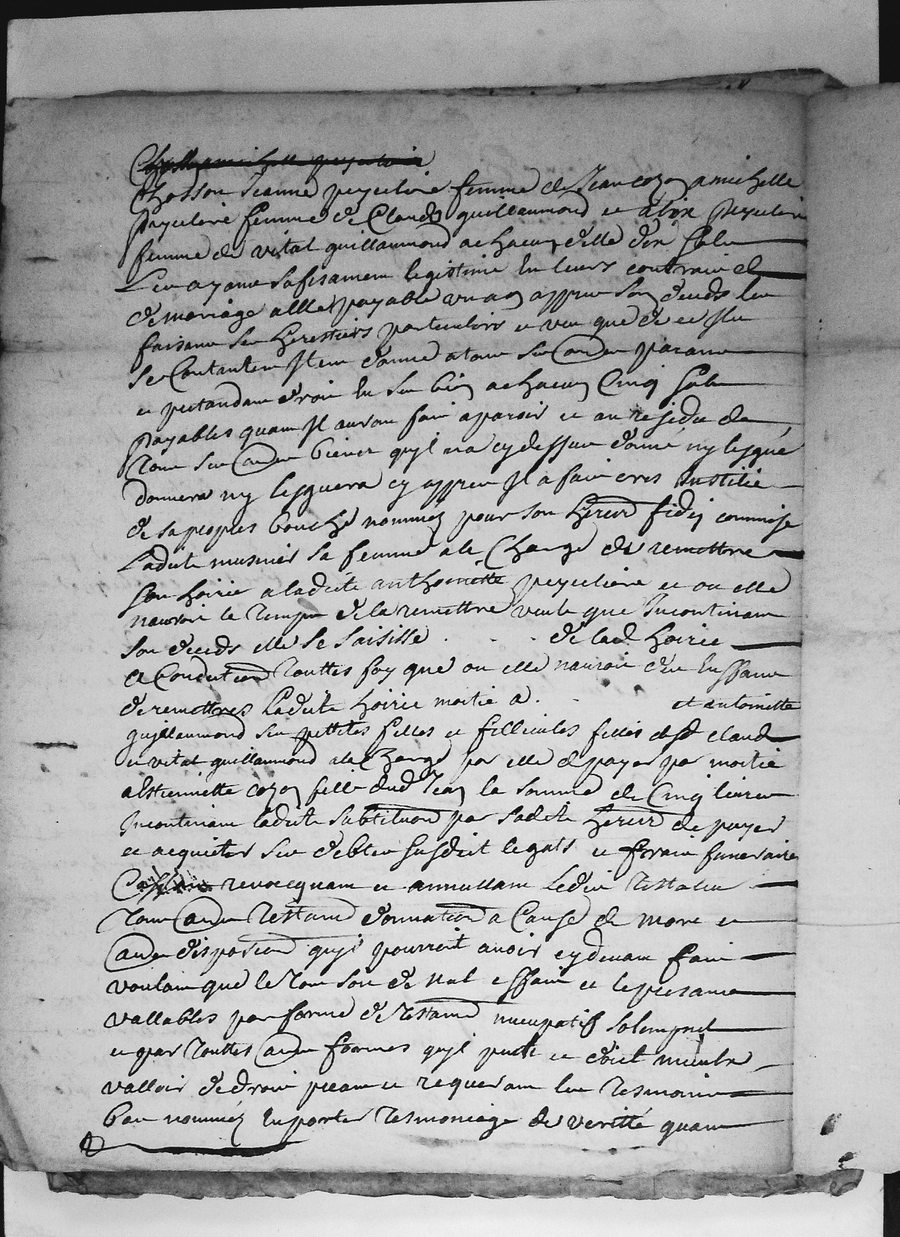 Chosson Jeanne peyculiere femme de Jean cozon a michelle
peyculiere femme de Claude guillaumond et alix peyculiere
femme de vital guillaumond a chacune d'elle dix solz
ayant legistime en leurs contraict
de mariage payable un an appres son deceds les
faisant ses herestiers particuliers et veu que de ce Ilz
se Contantent Item donne a tous ses autres parans
et pretandans droit en ses biens a chacun Cinq solz
payables quant Il auron fait aparoir et au residu de
tous ses autres biens quyl na cy dessus donné ny legué
donnera ny leguera cy appres Il a fait institué
de sa propre bouche nommé pour son herer fidei commise
Ladite musnier sa femme a la Charge de remettre
son hoirie a ladite anthoinette peyculiere et ou elle
nauroit le temps de la remettre veult que Incontinant
son deceds elle se saisisse de lad hoirie
a Condition touttes foys que ou elle nauroit
de remettre Ladite hoirie moitié a et antoinette
guillaumond ses pettites filles et fillieules filles desd claude
et vital guillaumond a la Charge par elle de payer par moitié
a Estiennette cozon fille dud Jean la somme de Cinq livres
Incontinant ladite substituon par sadite herer de payer
et acquiter ses debtes susdict legats et frais funeraires
revocquant et annullant Ledit testateur
tous autres testamt donnation a Cause de mort et
autre disposition quyl pourroit avoir cy devant fait
voulant que le tout soit de nul effait et le presant
vallables par forme de testamt nucupatif solempnel
et par touttes autres formes quyl peult et doict mieulx
valloir de droit priant et requerant les tesmoins
bas nommés En porter tesmoniage de veritté quant